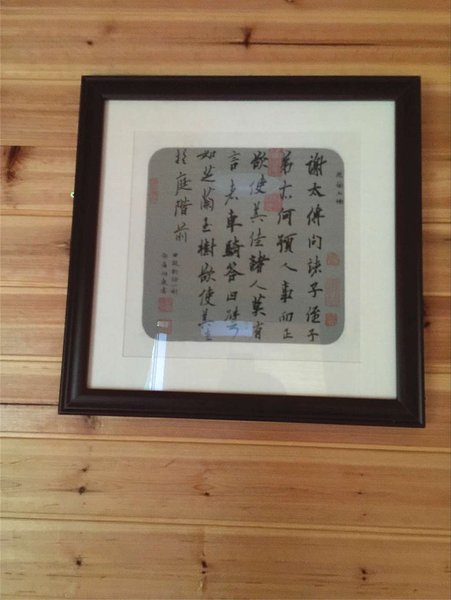 謝太傅问諸子侄子
弟亦何預人事而正
欲使其佳諸人莫有
言者車騎答曰譬
如芝蘭玉樹欲使其生
於庭階前